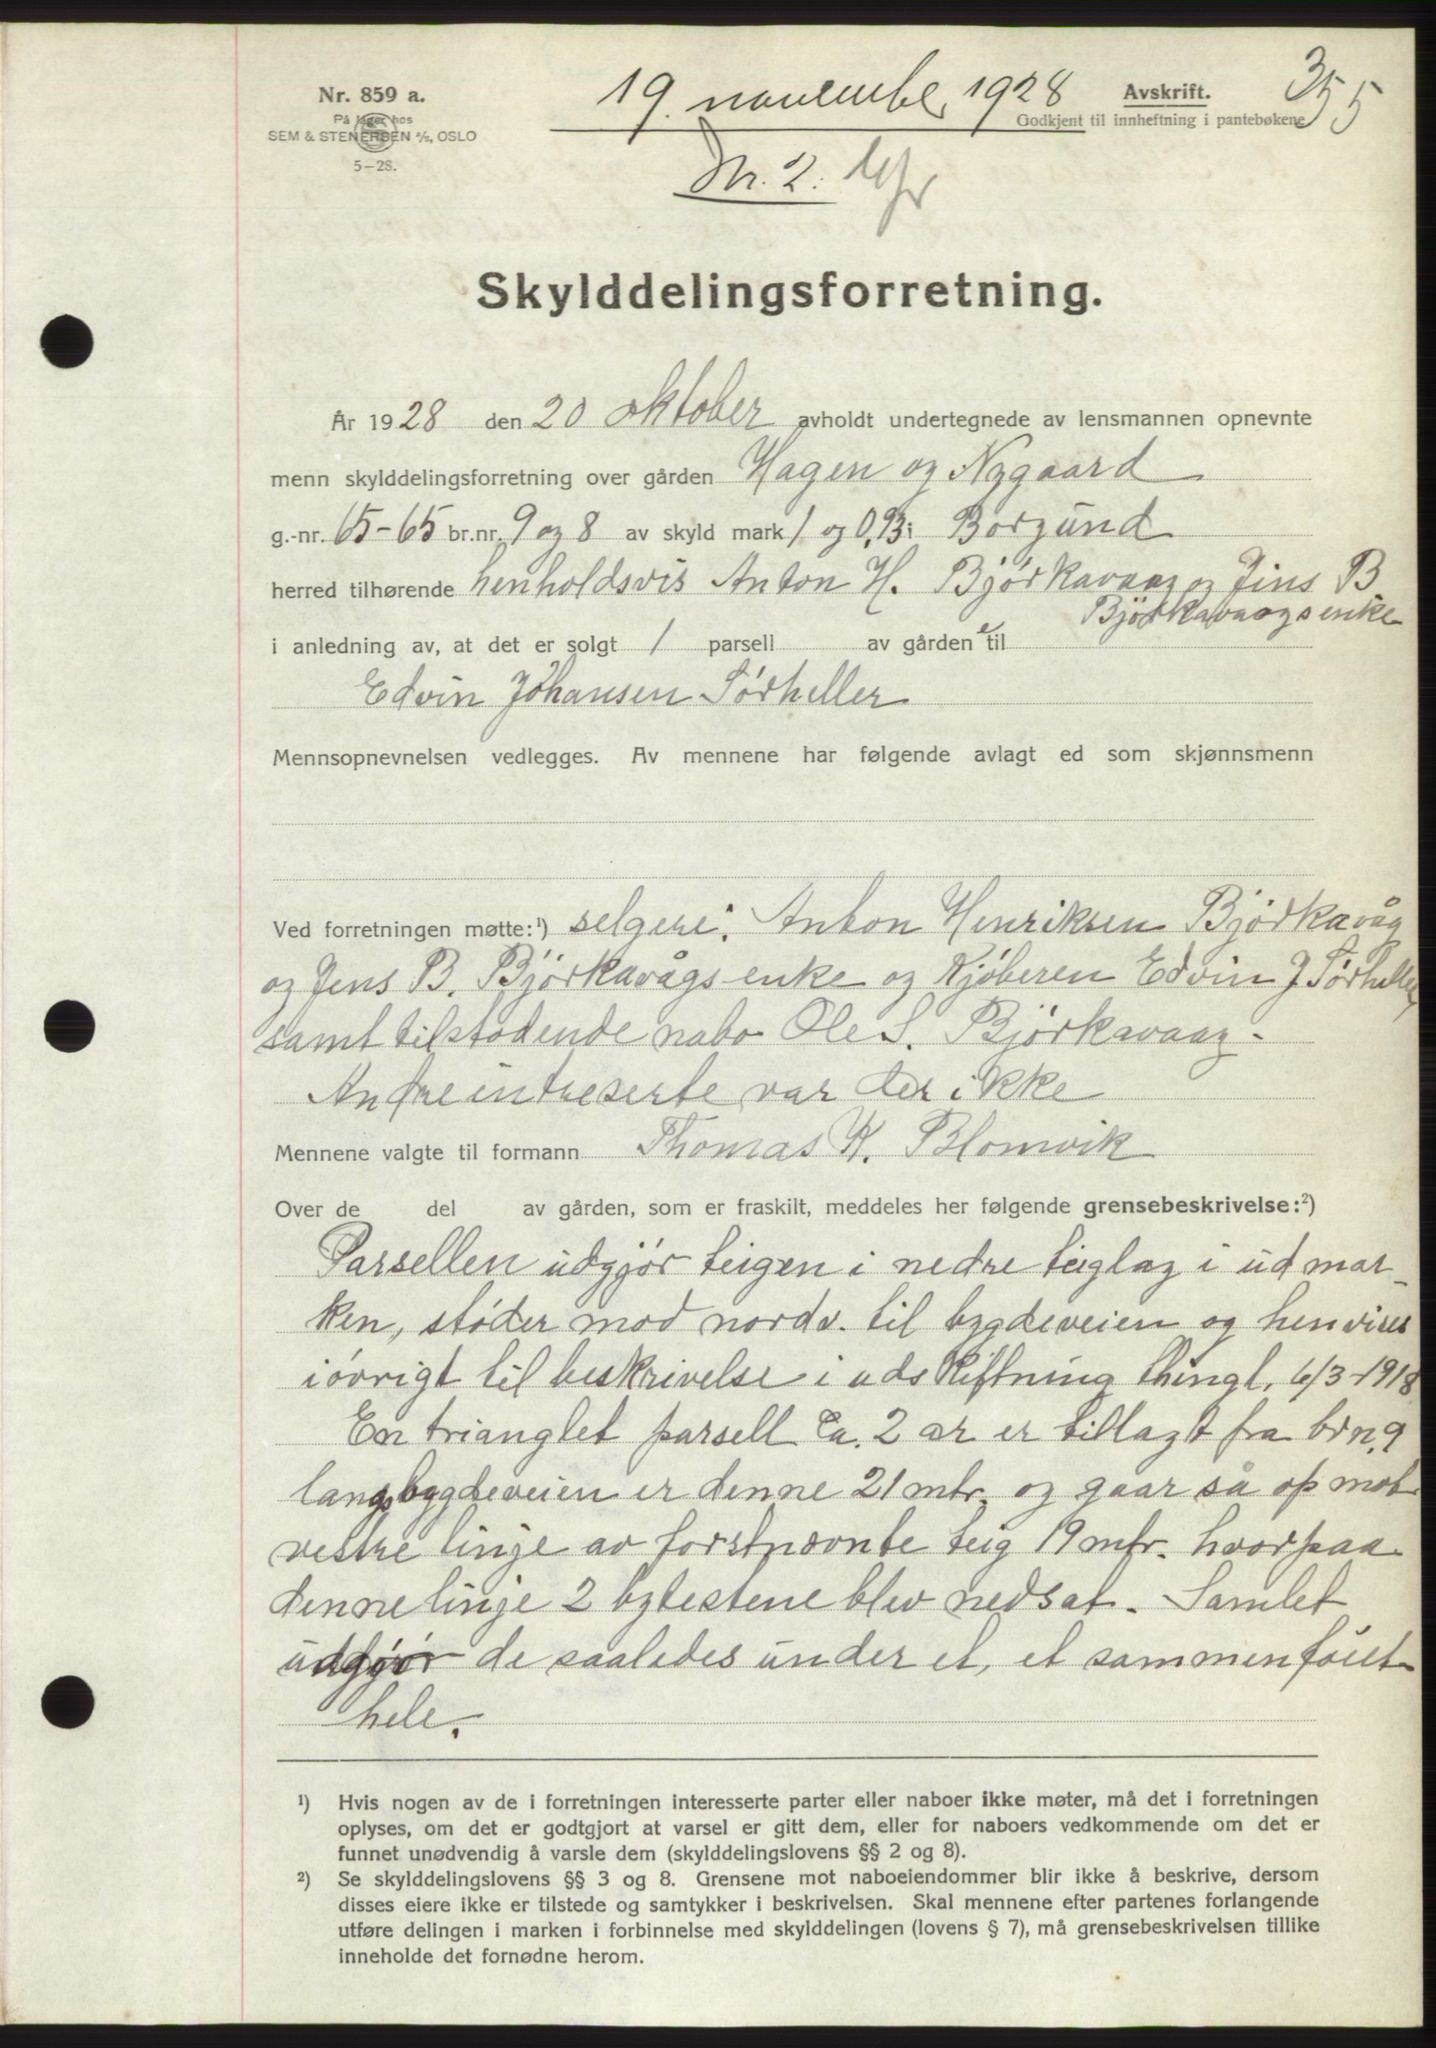 Nr. 859 a.
På lager hos
SEM & STENERSEN A/S, OSLO
5–28.
19. november 1928
Avskrift.
Godkjent til innheftning i pantebøkene
355
Nr. 2.
Skylddelingsforretning.
År 1928 den 20 oktober avholdt undertegnede av lensmannen opnevnte
menn skylddelingsforretning over gården Hagen og Nygaard
g.-nr. 65-65 br.nr. 9 og 8 av skyld mark 1 og 0, i Borgund
herred tilhørende henholdsvis Anton H. Bjørkavaag og Jins B
Bjørkavaagsenke
i anledning av, at det er solgt 1 parsell av gårdene til
Edvin Johansen Sørheller
Mennsopnevnelsen vedlegges. Av mennene har følgende avlagt ed som skjønnsmenn
Ved forretningen møtte:¹) selgere: Anton Henriksen Bjørkavåg
og Jens B. Bjørkavågsenke og Kjøberen Edvin J Sørheller
samt tilstødende nabo Ole S. Bjørkavaag.
Andre intreserte var der ikke
Mennene valgte til formann Thomas K. Blomvik
Over de del av gården, som er fraskilt, meddeles her følgende grensebeskrivelse:²)
Parsellen udgjør teigen i nedre teiglag i udmar-
ken, støder mod nordv. til bygdeveien og henvises
iøvrigt til beskrivelse i udskiftning thingl. 6/3-1918
En trianglet parsell ca. 2 ar er tillagt fra brn. 9
langs bygdeveien er denne 21 mtr. og gaar så op mot
vestre linje av førstnævnte teig 19 mtr. hvorpaa
denne linje 2 bytestene blev nedsat. Samlet
udgjør de saaledes under et, et sammenføiet
hele.
¹) Hvis nogen av de i forretningen interesserte parter eller naboer ikke møter, må det i forretningen
oplyses, om det er godtgjort at varsel er gitt dem, eller for naboers vedkommende om det er
funnet unødvendig å varsle dem (skylddelingslovens §§ 2 og 8).
²) Se skylddelingslovens §§ 3 og 8. Grensene mot naboeiendommer blir ikke å beskrive, dersom
disses eiere ikke er tilstede og samtykker i beskrivelsen. Skal mennene efter partenes forlangende
utføre delingen i marken i forbinnelse med skylddelingen (lovens § 7), må grensebeskrivelsen tillike
inneholde det fornødne herom.